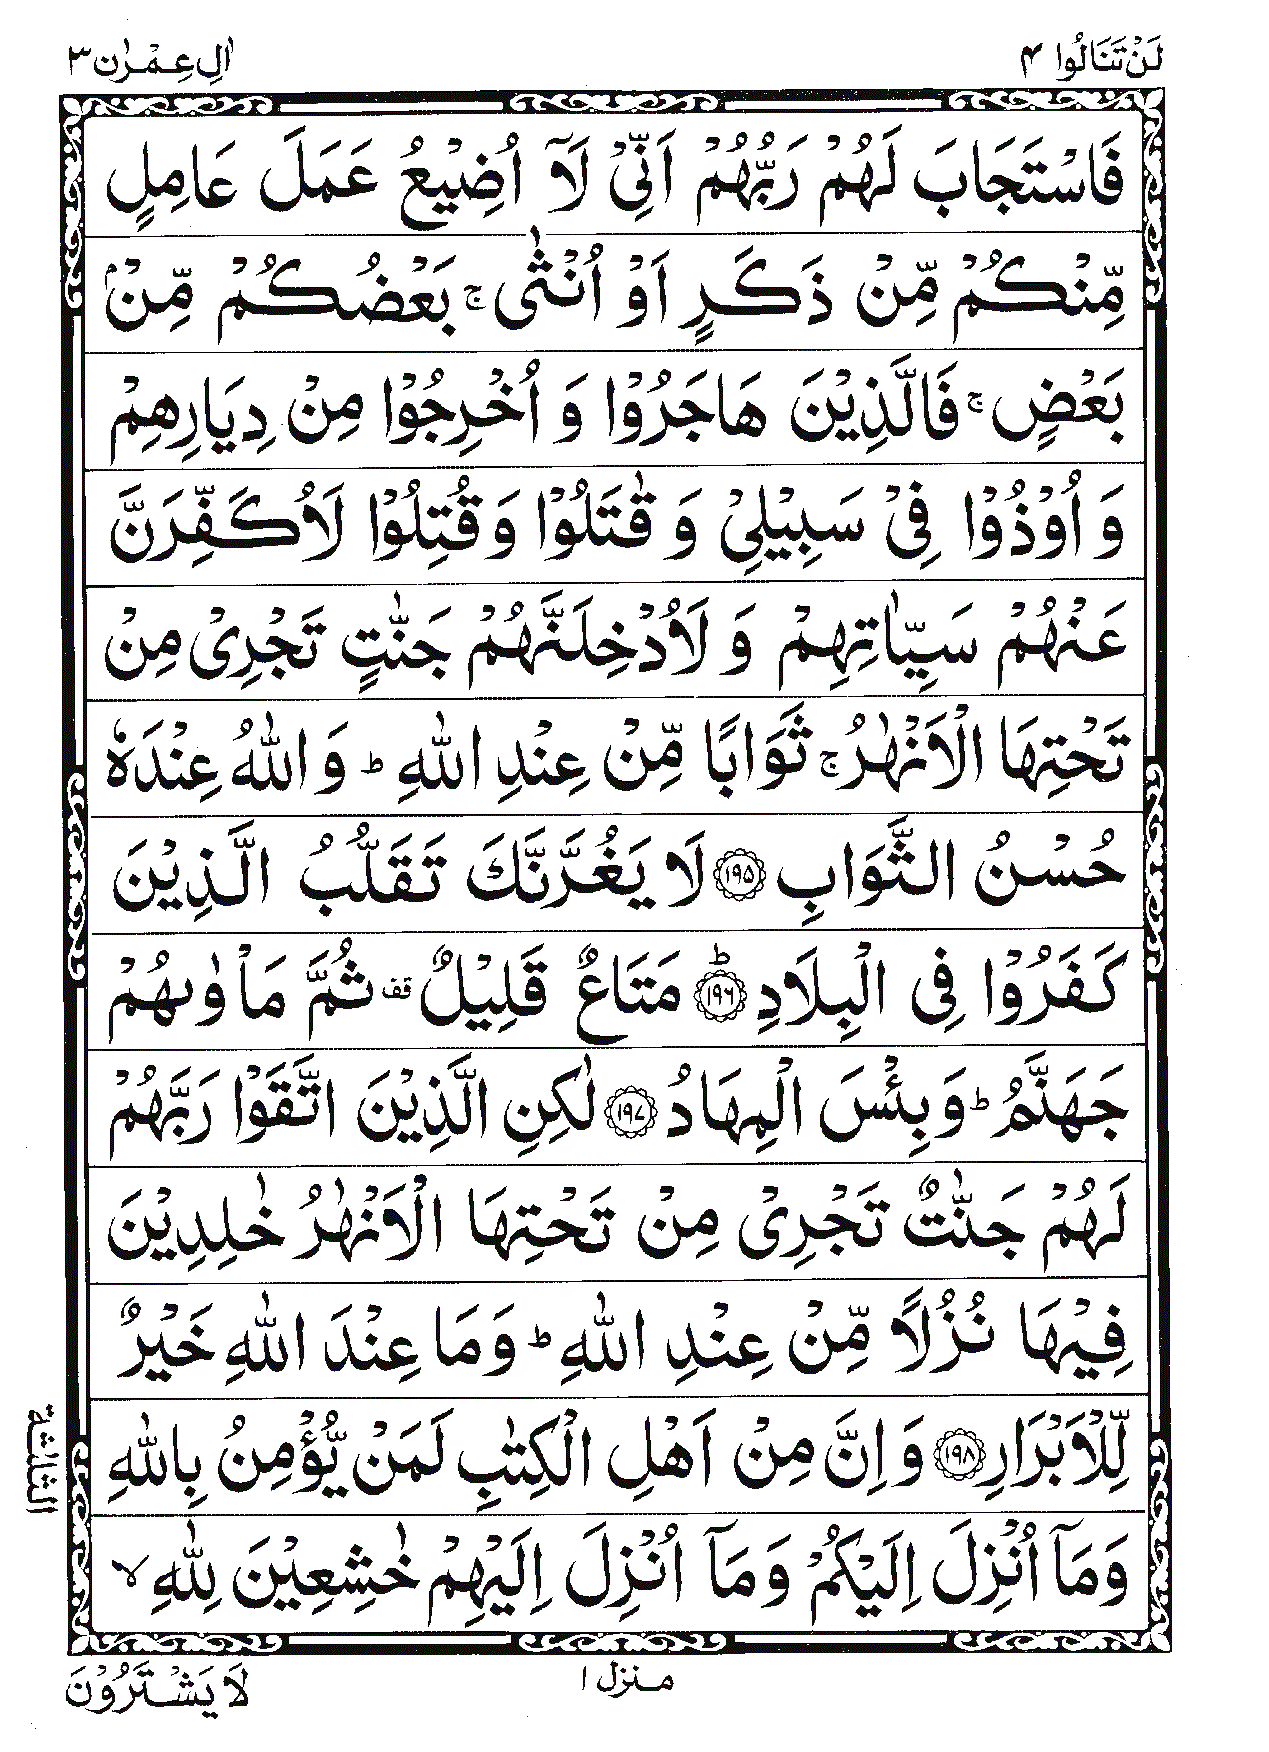 لَنْ تَنَالُوا ۴
اٰلِ عِمْرٰن ۳
فَاسْتَجَابَ لَهُمْ رَبُّهُمْ اَنِّیْ لَاۤ اُضِیْعُ عَمَلَ عَامِلٍ
مِّنْكُمْ مِّنْ ذَكَرٍ اَوْ اُنْثٰی ۚ بَعْضُكُمْ مِّنْۢ
بَعْضٍ ۚ فَالَّذِیْنَ هَاجَرُوْا وَ اُخْرِجُوْا مِنْ دِیَارِهِمْ
وَ اُوْذُوْا فِیْ سَبِیْلِیْ وَ قٰتَلُوْا وَ قُتِلُوْا لَاُكَفِّرَنَّ
عَنْهُمْ سَیِّاٰتِهِمْ وَ لَاُدْخِلَنَّهُمْ جَنّٰتٍ تَجْرِیْ مِنْ
تَحْتِهَا الْاَنْهٰرُ ۚ ثَوَابًا مِّنْ عِنْدِ اللّٰهِ ؕ وَ اللّٰهُ عِنْدَهٗ
حُسْنُ الثَّوَابِ ۝۱۹۵ لَا یَغُرَّنَّكَ تَقَلُّبُ الَّذِیْنَ
كَفَرُوْا فِی الْبِلَادِ ؕ۝۱۹۶ مَتَاعٌ قَلِیْلٌ قف ثُمَّ مَاْوٰىهُمْ
جَهَنَّمُ ؕ وَ بِئْسَ الْمِهَادُ ۝۱۹۷ لٰكِنِ الَّذِیْنَ اتَّقَوْا رَبَّهُمْ
لَهُمْ جَنّٰتٌ تَجْرِیْ مِنْ تَحْتِهَا الْاَنْهٰرُ خٰلِدِیْنَ
فِیْهَا نُزُلًا مِّنْ عِنْدِ اللّٰهِ ؕ وَ مَا عِنْدَ اللّٰهِ خَیْرٌ
لِّلْاَبْرَارِ ۝۱۹۸ وَ اِنَّ مِنْ اَهْلِ الْكِتٰبِ لَمَنْ یُّؤْمِنُ بِاللّٰهِ
وَ مَاۤ اُنْزِلَ اِلَیْكُمْ وَ مَاۤ اُنْزِلَ اِلَیْهِمْ خٰشِعِیْنَ لِلّٰهِ ۙ
الثلٰثة
منزل ۱
لَا یَشْتَرُوْنَ